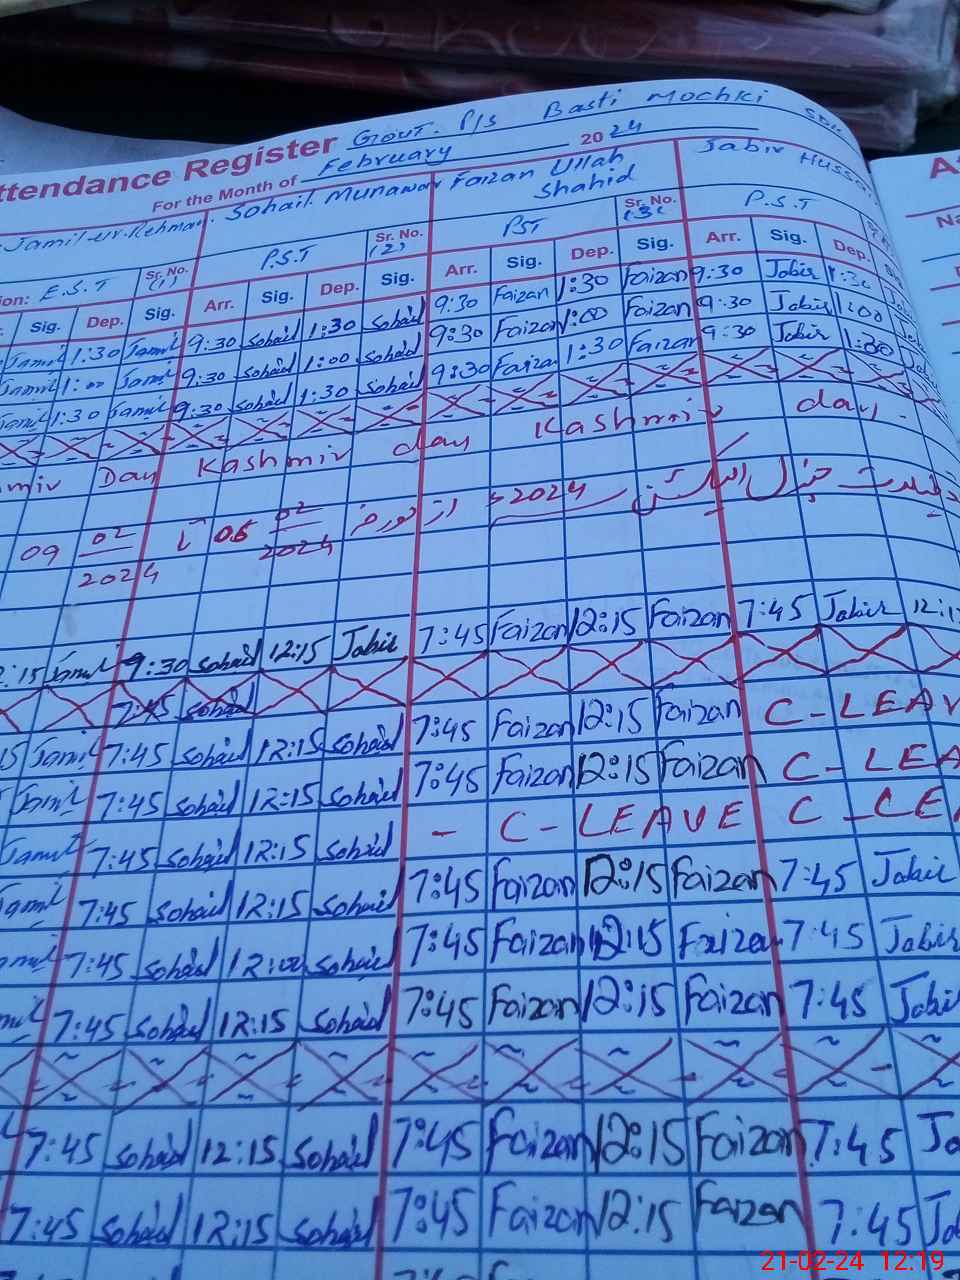 ttendance Register Govt. P/s Basti Mochki
For the Month of February 2024
Jamil-ur-Rehman Sohail Munawar Faizan Ullah Shahid Jabir Hussa
ion: E.S.T Sr. No. (1) P.S.T Sr. No. (2) PST Sr. No. (3) P.S.T
Sig. Dep. Sig. Arr. Sig. Dep. Sig. Arr. Sig. Dep. Sig. Arr. Sig. Dep.
Jamil 1:30 Jamil 9:30 Sohail 1:30 Sohail 9:30 Faizan 1:30 Faizan 9:30 Jabir 1:30
Jamil 1:00 Jamil 9:30 Sohail 1:00 Sohail 9:30 Faizan 1:00 Faizan 9:30 Jabir 1:00
Jamil 1:30 Jamil 9:30 Sohail 1:30 Sohail 9:30 Faizan 1:30 Faizan 9:30 Jabir 1:30
mir Day Kashmir day Kashmir day
جنرل الیکشن 2024 از مورخہ 05 02 2024 تا 09 02 2024
2:15 Jamil 9:30 Sohail 12:15 Jabir 7:45 Faizan 12:15 Faizan 7:45 Jabir 12:1
7:45 Sohail
15 Jamil 7:45 Sohail 12:15 Sohail 7:45 Faizan 12:15 Faizan C-LEAV
Jamil 7:45 Sohail 12:15 Sohail 7:45 Faizan 12:15 Faizan C-LEA
Jamil 7:45 Sohail 12:15 Sohail - C-LEAVE C-LEA
Jamil 7:45 Sohail 12:15 Sohail 7:45 Faizan 12:15 Faizan 7:45 Jabir
mil 7:45 Sohail 12:00 Sohail 7:45 Faizan 12:15 Faizan 7:45 Jabir
mil 7:45 Sohail 12:15 Sohail 7:45 Faizan 12:15 Faizan 7:45 Jabir
7:45 Sohail 12:15 Sohail 7:45 Faizan 12:15 Faizan 7:45 Ja
7:45 Sohail 12:15 Sohail 7:45 Faizan 12:15 Faizan 7:45 Ja
21-02-24 12:19